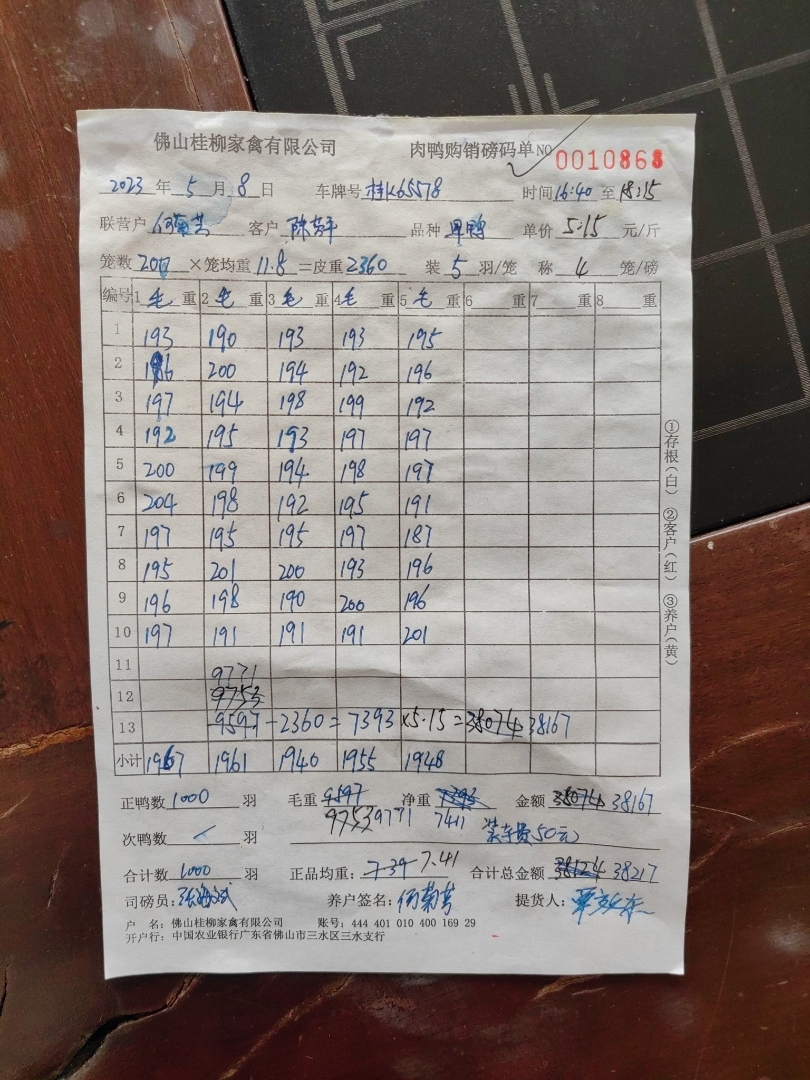 佛山桂柳家禽有限公司 肉鸭购销磅码单 NO 0010868
2023 年 5 月 8 日 车牌号 桂K65578 时间 16:40 至 18:15
联营户 何菊芳 客户 品种 单价 5.15 元/斤
笼数 200 ×笼均重 11.8 =皮重 2360 装 5 羽/笼 称 4 笼/磅
编号 1 毛 重 2 毛 重 3 毛 重 4 毛 重 5 毛 重 6 重 7 重 8 重
1 193 190 193 193 195
2 196 200 194 192 196
3 197 194 198 199 192
4 192 195 193 197 197
5 200 199 194 198 197
6 204 198 192 195 191
7 197 195 195 197 187
8 195 201 200 193 196
9 196 198 190 200 196
10 197 191 191 191 201
11 9771
12 9753
13 9597 -2360 = 7393 ×5.15 = 38074 38167
小计 1967 1961 1940 1955 1948
正鸭数 1000 羽 毛重 9597 净重 7393 金额 38074 38167
9753 9771 7411
次鸭数 羽 装车费50元
合计数 1000 羽 正品均重: 7.39 7.41 合计总金额 38124 38217
司磅员: 养户签名: 何菊芳 提货人:
户 名: 佛山桂柳家禽有限公司 账号: 444 401 010 400 169 29
开户行: 中国农业银行广东省佛山市三水区三水支行
①存根(白) ②客户(红) ③养户(黄)